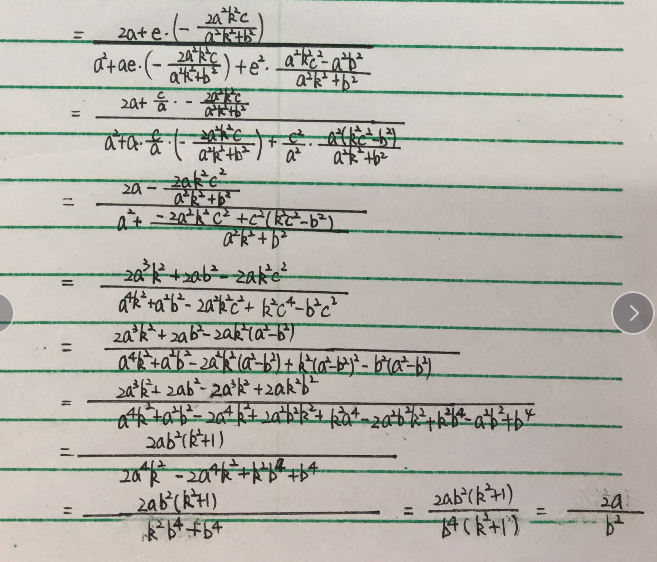 = (2a+e·(-2a²k²c/(a²k²+b²)))/(a²+ae·(-2a²k²c/(a²k²+b²))+e²·(a²k²c²-a²b²)/(a²k²+b²))
= (2a+c/a·-2a²k²c/(a²k²+b²))/(a²+a·c/a·(-2a²k²c/(a²k²+b²))+c²/a²·a²(k²c²-b²)/(a²k²+b²))
= (2a-2ak²c²/(a²k²+b²))/(a²+(-2a²k²c²+c²(k²c²-b²))/(a²k²+b²))
= (2a³k²+2ab²-2ak²c²)/(a⁴k²+a²b²-2a²k²c²+k²c⁴-b²c²)
= (2a³k²+2ab²-2ak²(a²-b²))/(a⁴k²+a²b²-2a²k²(a²-b²)+k²(a²-b²)²-b²(a²-b²))
= (2a³k²+2ab²-2a³k²+2ak²b²)/(a⁴k²+a²b²-2a⁴k²+2a²b²k²+k²a⁴-2a²b²k²+k²b⁴-a²b²+b⁴)
= 2ab²(k²+1)/(2a⁴k²-2a⁴k²+k²b⁴+b⁴)
= 2ab²(k²+1)/(k²b⁴+b⁴) = 2ab²(k²+1)/(b⁴(k²+1)) = 2a/b²